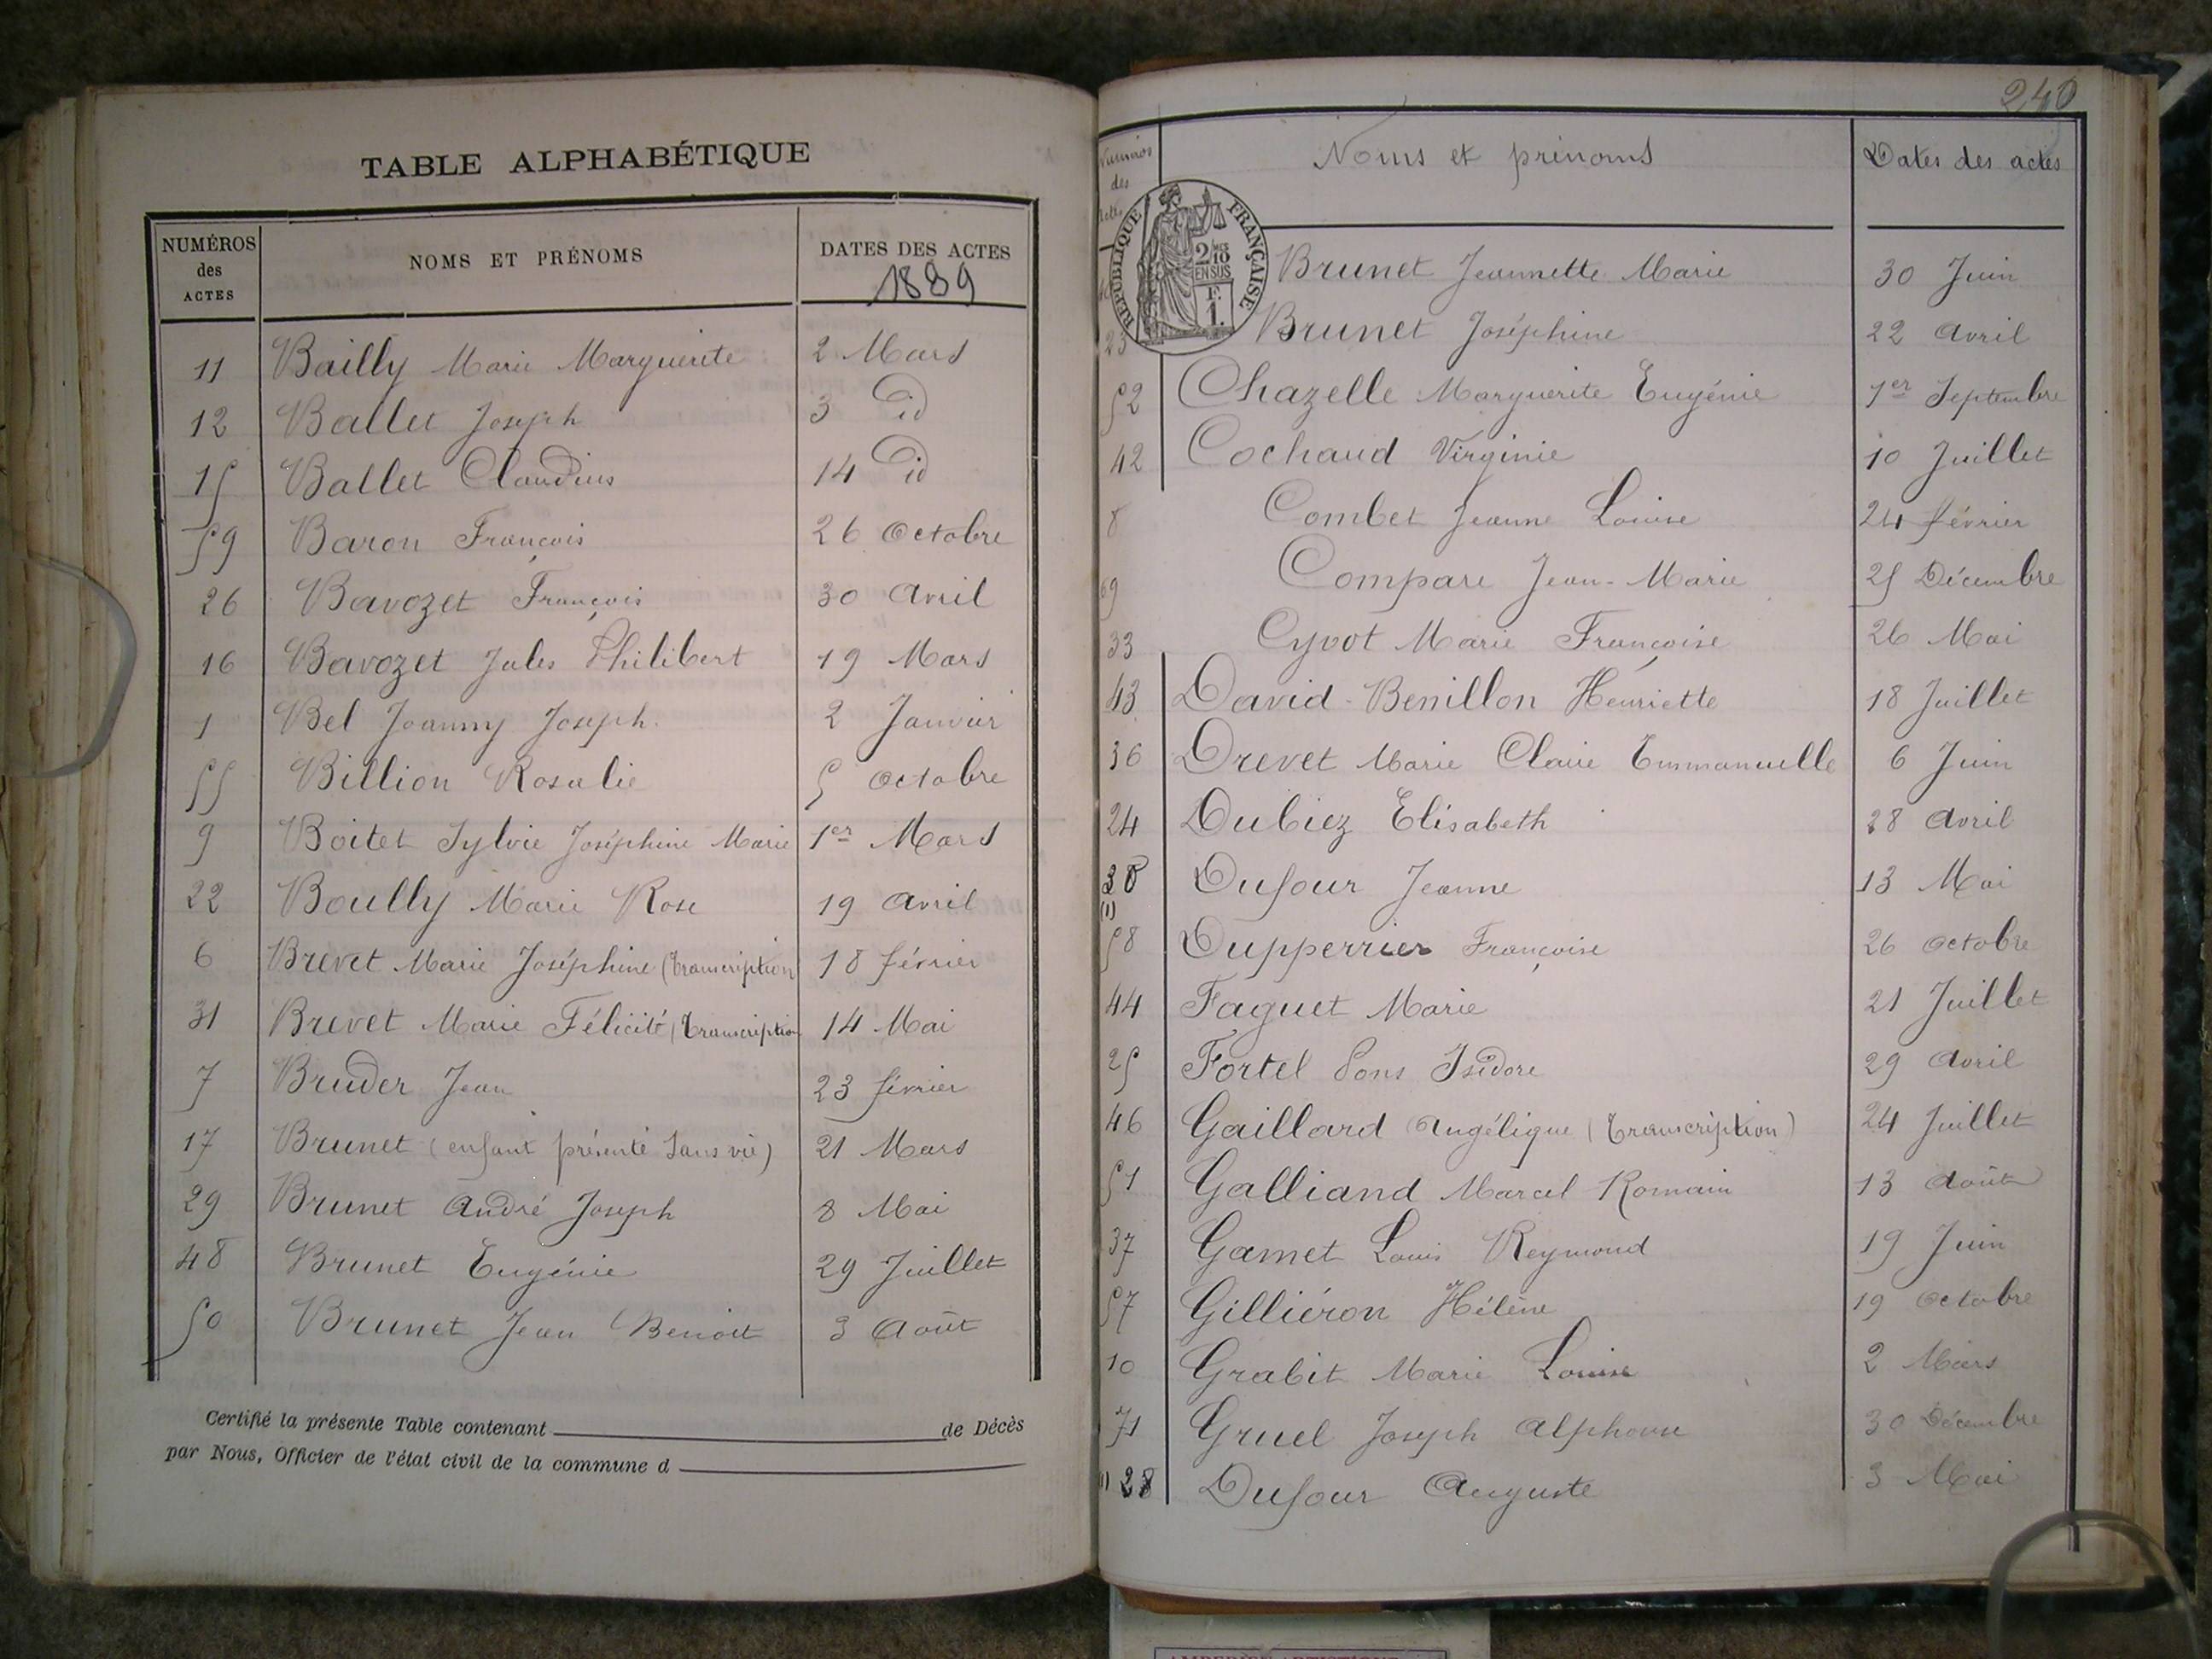 TABLE ALPHABÉTIQUE
NUMÉROS des ACTES NOMS ET PRÉNOMS DATES DES ACTES
1889
11 Bailly Marie Marguerite 2 Mars
12 Ballet Joseph 3 id
15 Ballet Claudius 14 id
59 Baron François 26 Octobre
26 Bavozet François 30 Avril
16 Bavozet Jules Philibert 19 Mars
1 Bel Joanny Joseph. 2 Janvier
55 Billion Rosalie 5 Octobre
9 Boitet Sylvie Joséphine Marie 1er Mars
22 Boully Marie Rose 19 Avril
6 Brevet Marie Joséphine (transcription) 18 février
31 Brevet Marie Félicité (transcription 14 Mai
7 Bruder Jean 23 février
17 Brunet (enfant présenté sans vie) 21 Mars
29 Brunet André Joseph 8 Mai
48 Brunet Eugénie 29 Juillet
50 Brunet Jean Benoit 3 Août
Certifié la présente Table contenant de Décès
par Nous, Officier de l'état civil de la commune d
240
Numéros des Noms et prénoms Dates des actes
RÉPUBLIQUE FRANÇAISE
2/10
EN SUS
F.
1.
Brunet Jeannette Marie 30 Juin
23 Brunet Joséphine 22 Avril
52 Chazelle Marguerite Eugénie 1er Septembre
42 Cochaud Virginie 10 Juillet
8 Combet Jeanne Louise 24 février
69 Compare Jean-Marie 25 Décembre
33 Cyvot Marie Françoise 26 Mai
43 David-Benillon Henriette 18 Juillet
36 Drevet Marie Claire Emmanuelle 6 Juin
24 Dubiez Elisabeth 28 Avril
30 Dufour Jeanne 13 Mai
(1)
58 Dupperrier Françoise 26 Octobre
44 Faguet Marie 21 Juillet
25 Fortel Pons Isidore 29 Avril
46 Gaillard Angélique (transcription) 24 Juillet
51 Galliand Marcel Romain 13 Août
37 Gamet Louis Reymond 19 Juin
57 Gilliéron Hélène 19 Octobre
10 Grabit Marie Louise 2 Mars
71 Gruel Joseph Alphonse 30 Décembre
(1) 28 Dufour Auguste 3 Mai